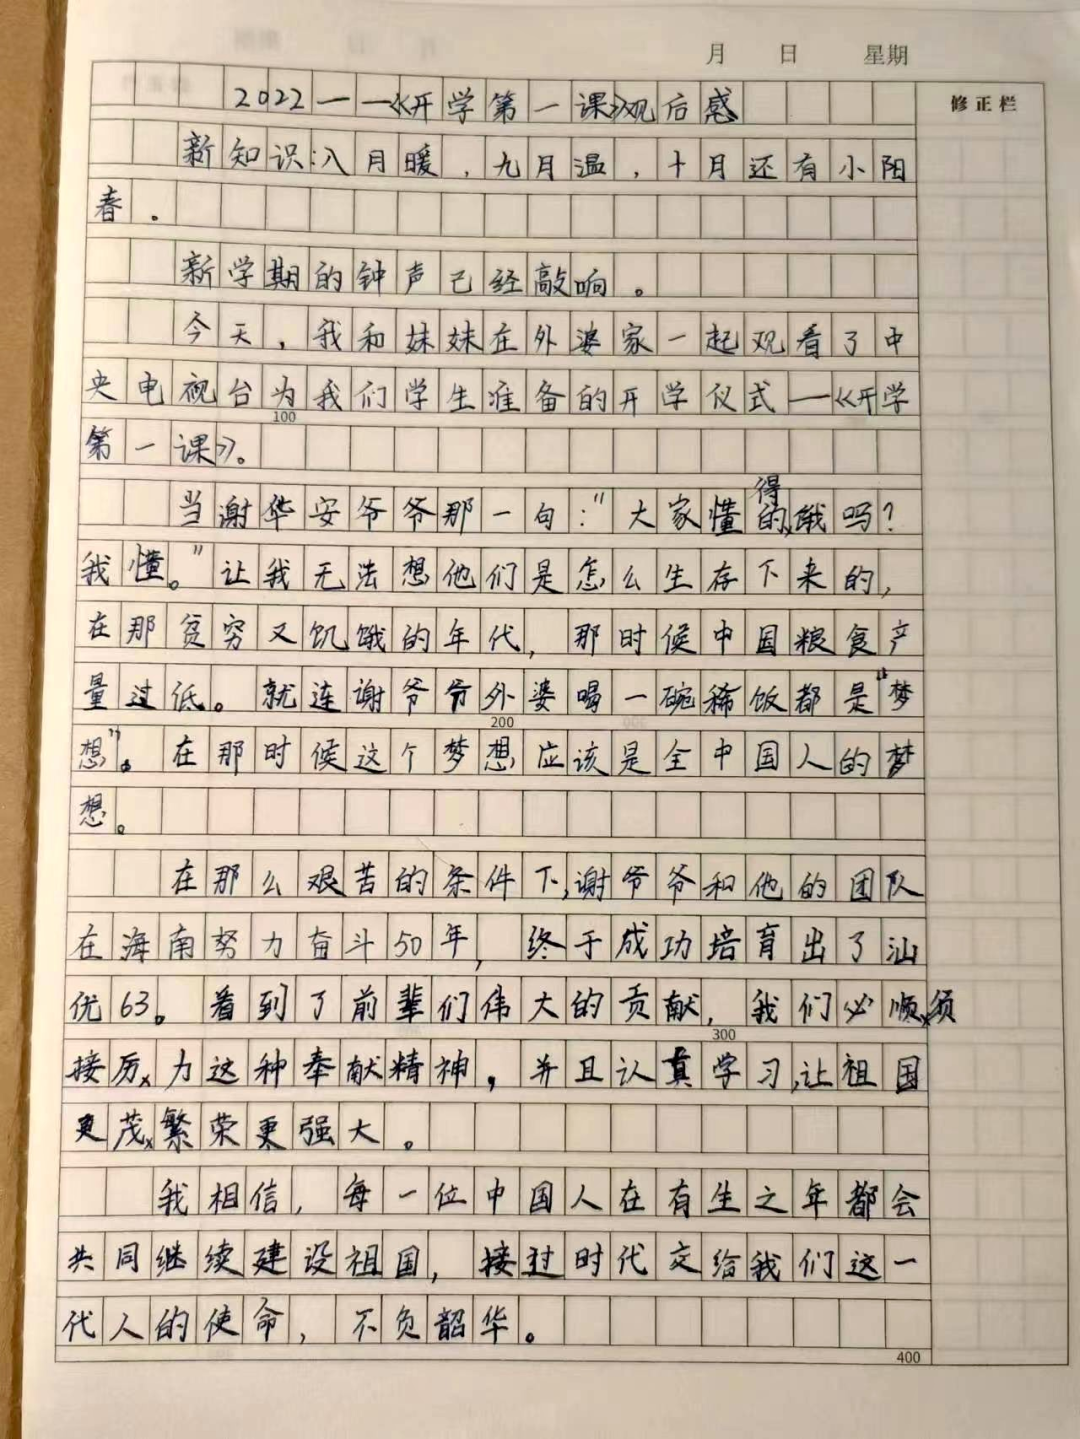 月 日 星期
修正栏
2022——《开学第一课》观后感
新知识:八月暖，九月温，十月还有小阳
春。
新学期的钟声已经敲响。
今天，我和妹妹在外婆家一起观看了中
央电视台为我们学生准备的开学仪式——《开学
100
第一课》。
得
当谢华安爷爷那一句：“大家懂的饿吗？
我懂。”让我无法想他们是怎么生存下来的，
在那贫穷又饥饿的年代，那时候中国粮食产
量过低。就连谢爷爷外婆喝一碗稀饭都是“梦
200
想”。在那时候这个梦想应该是全中国人的梦
想。
在那么艰苦的条件下，谢爷爷和他的团队
在海南努力奋斗50年，终于成功培育出了汕
优63。看到了前辈们伟大的贡献，我们必顺须
300
接厉力这种奉献精神，并且认真学习，让祖国
更茂繁荣更强大。
我相信，每一位中国人在有生之年都会
共同继续建设祖国，接过时代交给我们这一
代人的使命，不负韶华。
400